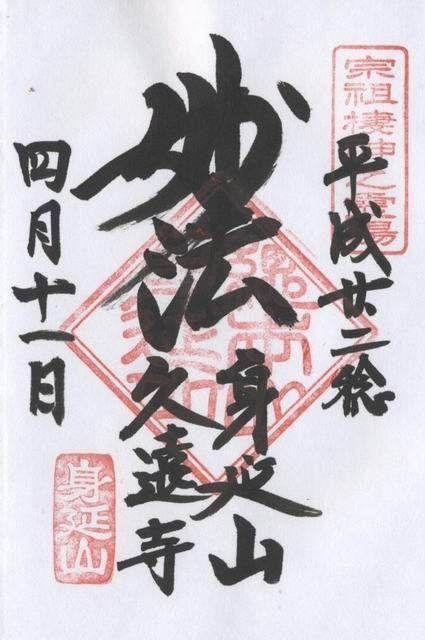 宗祖棲神之霊場
平成廿二稔
妙法
身延山
久遠寺
四月十一日
身延山